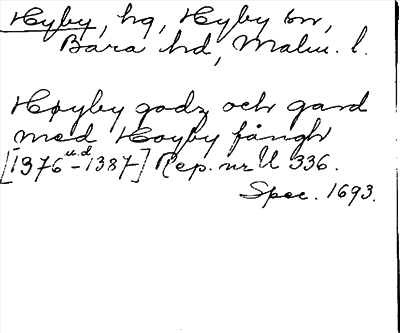 Hyby, hg, Hyby sn,
Bara hd, Malm. l.
Høyby godz och gard
med Høyby fångh
[1376 u.d -1387] Rep. nr U 336.
Spec. 1693.